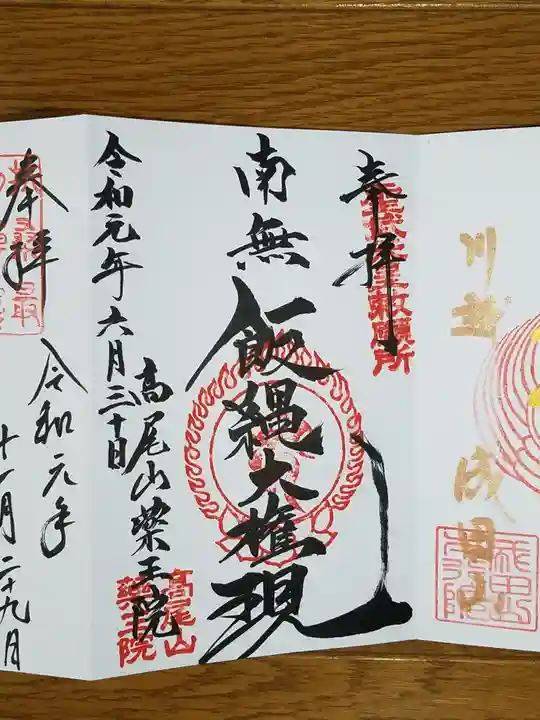 川越
成田山
奉拝
南無飯縄大権現
令和元年六月三十日
高尾山薬王院
高尾山
薬王院
奉拝
令和元年
十一月二十九日